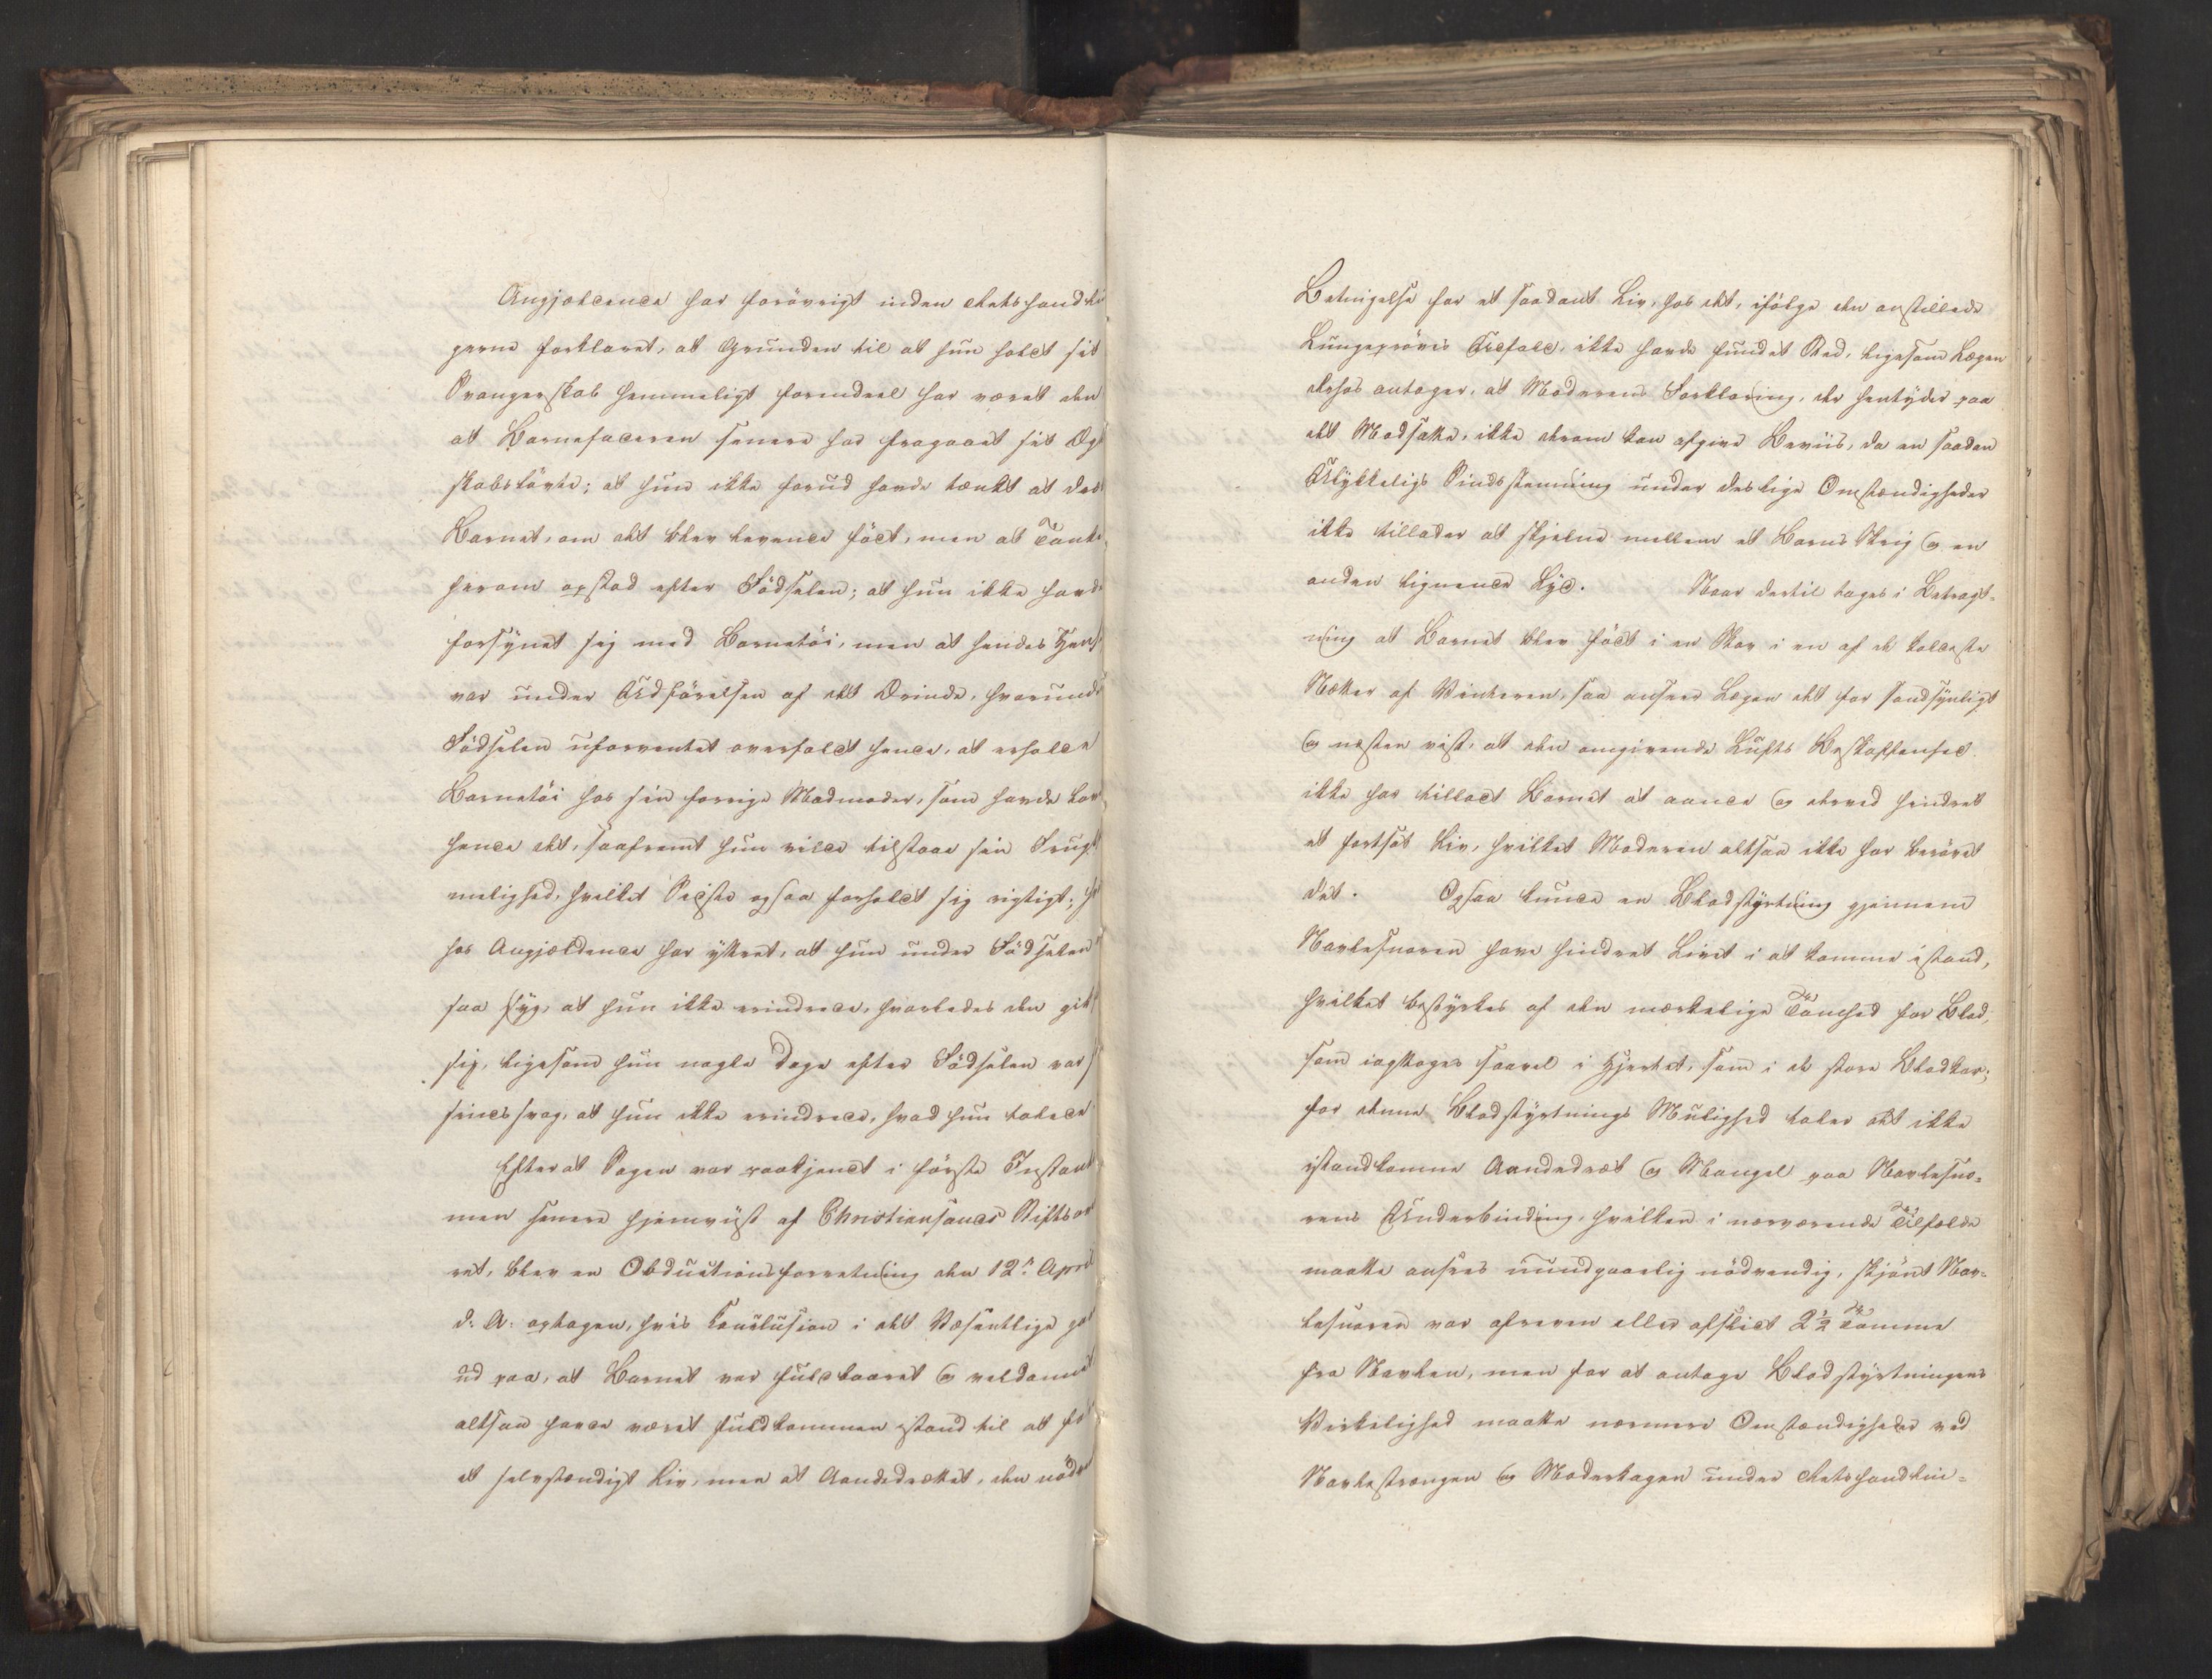 Angjældende har forövrigt under Retshandlin
gerne forklaret, at Grunden til at hun holdt sit
Svangerskab hemmeligt formedel har været den
at Barnefaderen senere har fragaaet sit Ægte
skabslöfte; at hun ikke forud havde tænkt at dræ
Barnet, om det blev levende föd, men at Tanke
herom opstod efter Födselen; at hun ikke havde
forsynet sig med Barnetöi, men at hendes Hens
var under Udförelsen af det Ærinde, hvorunde
Födselen uforventet overfaldt hende, at erholde
Barnetöi hos sin forrige Madmoder, som havde lov
hende det, saafremt hun vilde tilstaae sin Frugt
melighed, hvilket Sidste ogsaa forholdt sig rigtigt;
hos Angjældende har yttret, at hun under Födselen
saa syg, at hun ikke erindrede, hvorledes den gik
sig, ligesom hun nogle Dage efter Födselen var
sindssvag, at hun ikke erindrede, hvad hun talede
Efterat Sagen var paakjendt i förste Instant
men senere hjemviist af Christiansands Stiftsov
ret, blev en Obductionsforretning den 12te April
d. A. optagen, hvis Conclusion i det Væsentlige gaa
ud paa, at Barnet var fuldbaaret og veldannet
altsaa havde været fuldkommen istand til at fö
et selvstændigt Liv, men at Aandedrættet, den nödve
Betingelse for et saadant Liv, hos det, ifölge den anstillede
Lungepröves Udfald, ikke havde fundet Sted, ligesom Lægen
derhos antager, at Moderens Forklaring, der hentyder paa
det Modsatte, ikke derom kan afgive Beviis, da en saadan
Ulykkeligs Sindsstemning under deslige Omstændigheder
ikke tillader at skjelne mellem et Barns Skrig og en
anden lignende Lyd. Naar dertil tages i Betragt-
ning at Barnet blev föd i en Skov i en af de koldeste
Nætter af Vinteren, saa anseer Lægen det for sandsynligt
og næsten vist, at den omgivende Lufts Beskaffenhed
ikke har tilladt Barnet at aande og derved hindret
et fortsat Liv, hvilket Moderen altsaa ikke har berövet
det. Ogsaa kunde en Blodstyrtning gjennem
Navlesnoren have hindret Livet i at komme istand,
hvilket bestyrkes af den mærkelige Tomhed for Blod,
som iagttoges saavel i Hjertet, som i de store Blodkar;
for denne Blodstyrtnings Mulighed taler det ikke
istandkomne Aandedræt og Mangel paa Navlesno-
rens Underbinding, hvilken i nærværende Tilfælde
maatte ansees uundgaaelig nödvendig, skjönt Nav-
lesnoren var afreven eller afslidt 2½ Tomme
fra Navlen, men for at antage Blodstyrtningens
Virkelighed maatte nærmere Omstændigheder ved
Navlestrængen og Moderkagen under Retshandlin-